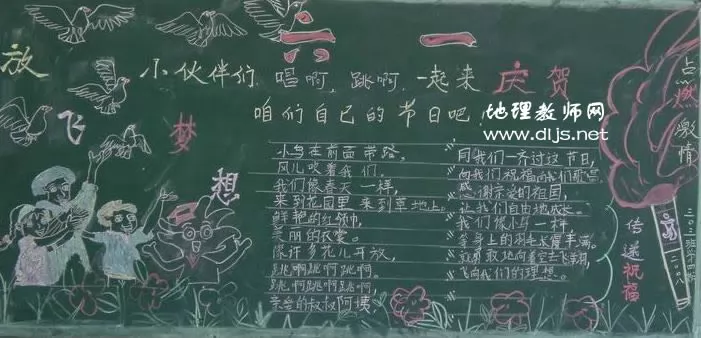 放飞梦想
六一
小伙伴们,唱啊,跳啊,一起来庆贺
咱们自己的节日吧
地理教师网
www.dljs.net
小鸟在前面带路,
风儿吹着我们,
我们像春天一样,
来到花园里来到草地上。
鲜艳的红领巾,
美丽的衣裳。
像许多花儿开放,
跳啊跳啊跳啊,
跳啊跳啊跳啊,
亲爱的叔叔阿姨
同我们一齐过这节日,
向我们祝福
感谢亲爱的祖国,
让我们自由地成长。
我们像小鸟一样,
等身上的羽毛长丰满。
勇敢地向着天空去飞翔,
飞向我们的理想。
点燃激情
传递祝福
京
2008